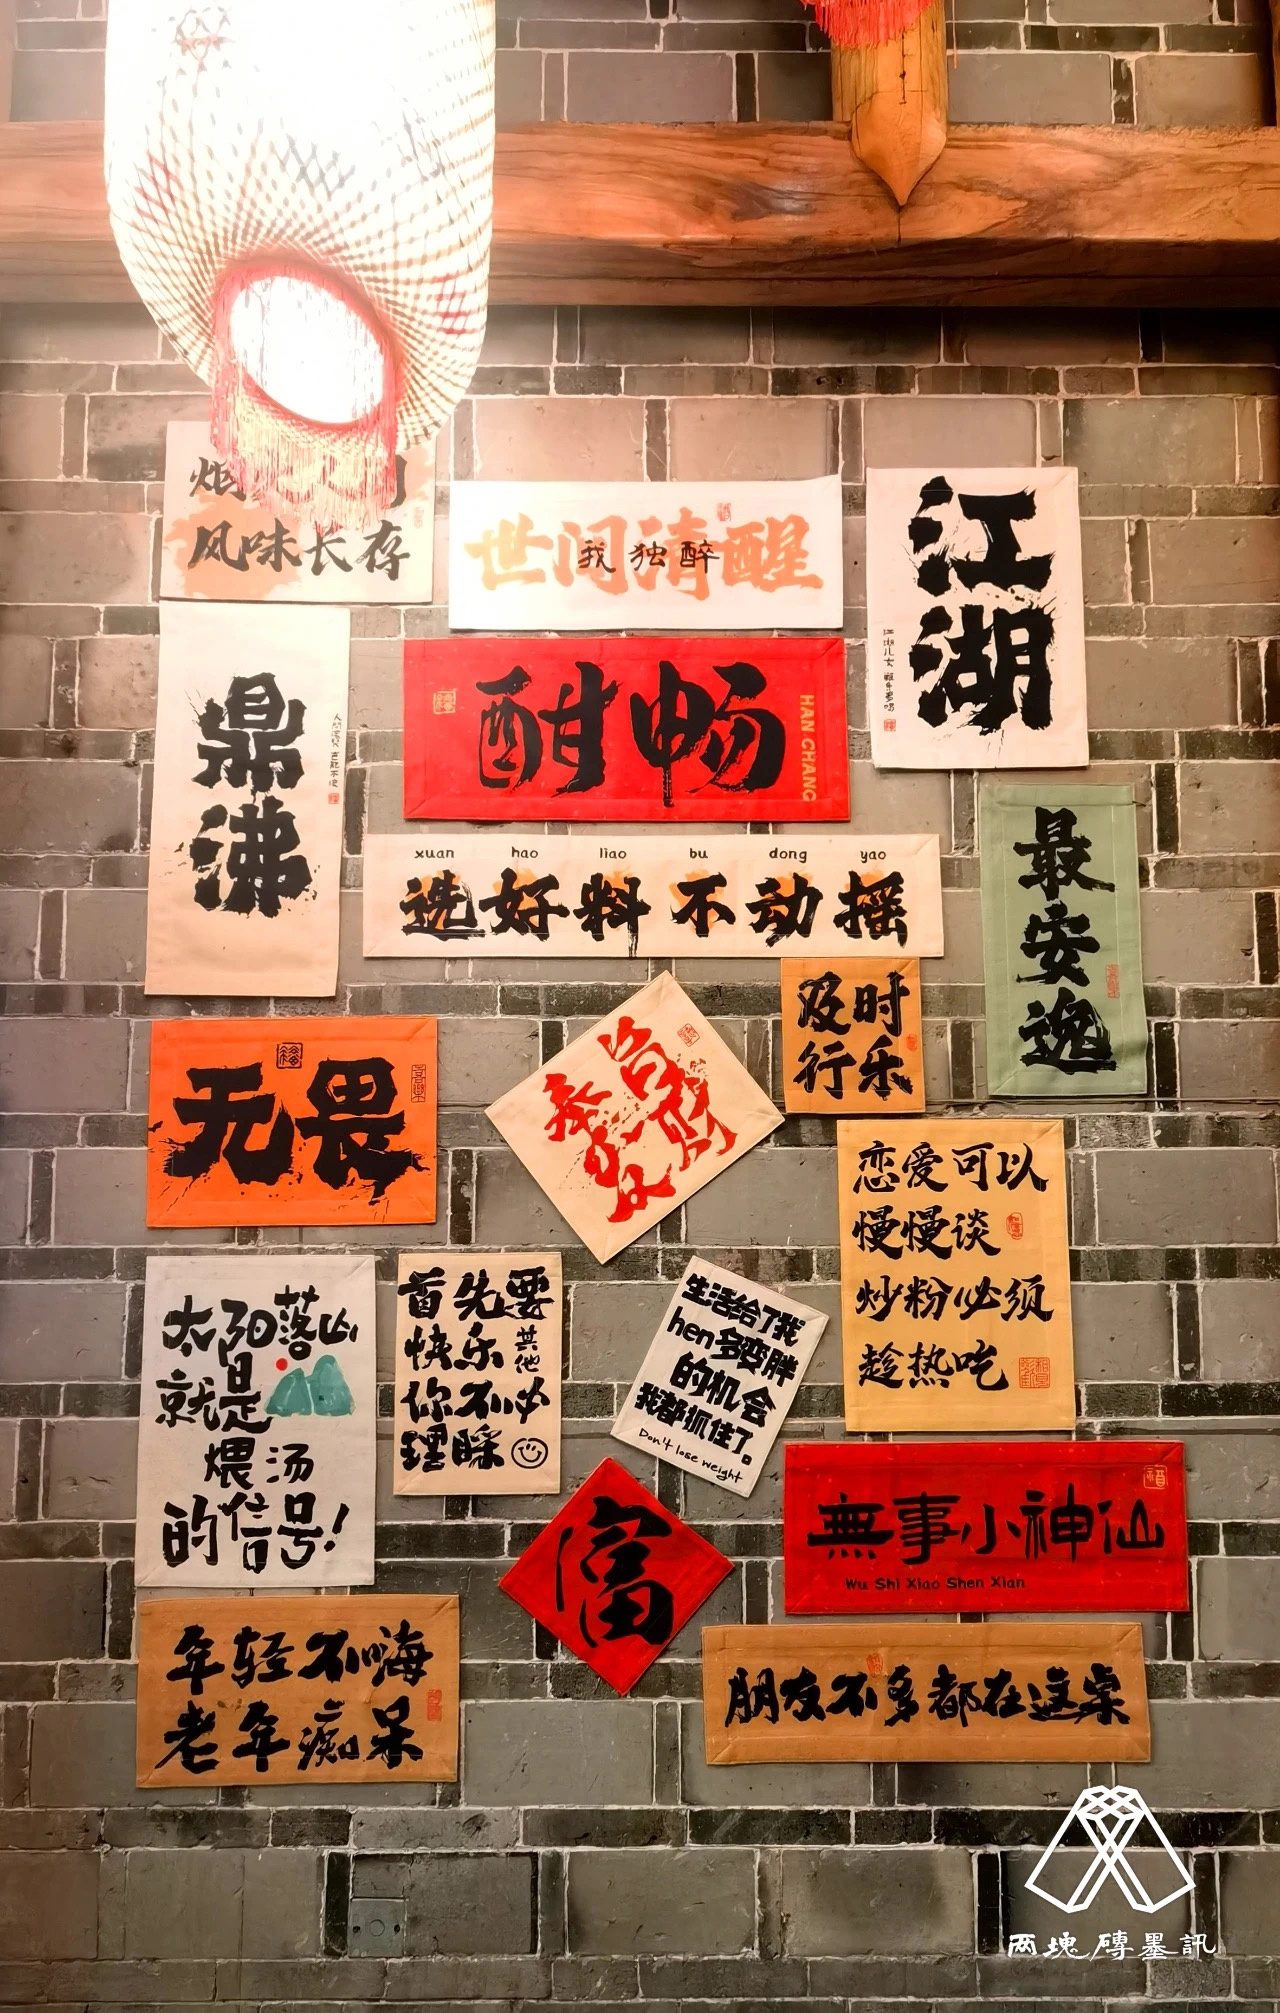 风味长存
世间清醒
我独醉
江湖
江湖儿女
鼎沸
酣畅
HAN CHANG
xuan hao liao bu dong yao
选好料不动摇
最安逸
及时
行乐
无畏
福
恋爱可以
慢慢谈
炒粉必须
趁热吃
太阳落山
就是
煨汤
的信号!
首先要
快乐其他
你不必
理睬
生活给了我
hen多变胖
的机会
我都抓住了。
Don't lose weight
富
無事小神仙
Wu Shi Xiao Shen Xian
年轻不嗨
老年痴呆
朋友不多都在这桌
两塊磚墨訊